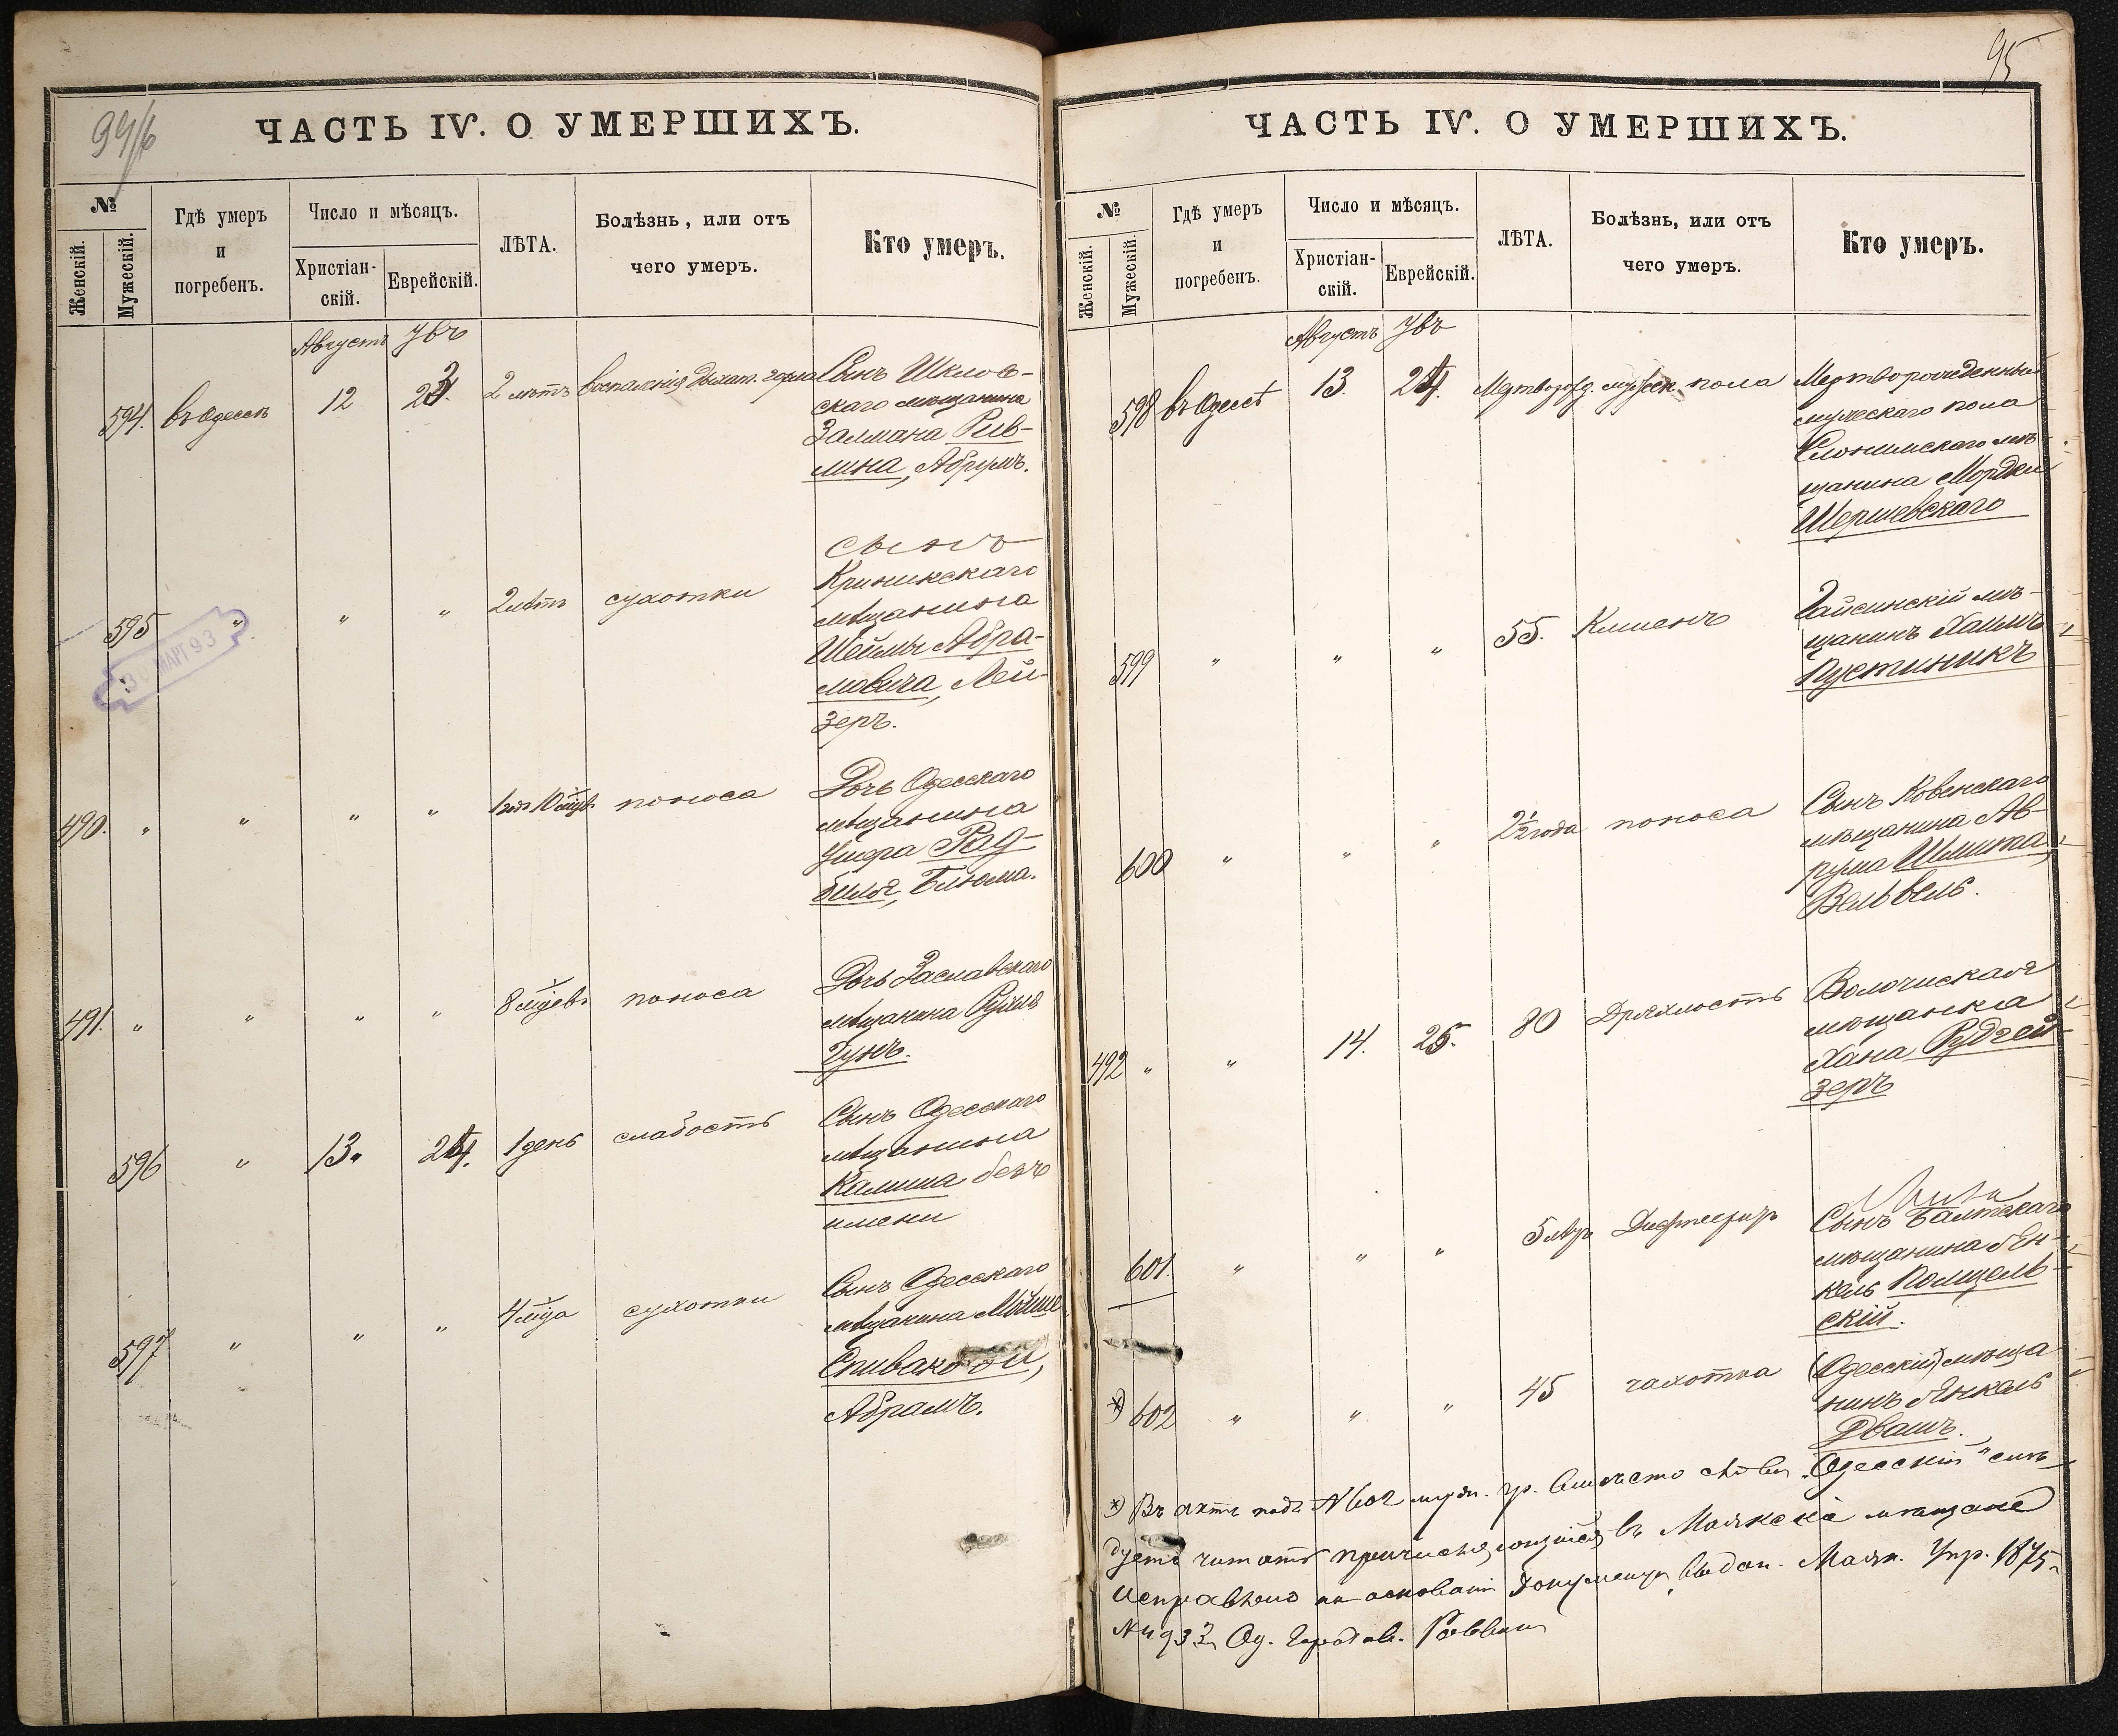 94/б
ЧАСТЬ IV. О УМЕРШИХЪ.
№
Женскій.
Мужескій.
Гдѣ умеръ
и
погребенъ.
Число и мѣсяцъ.
Христіан-
скій.
Еврейскій.
ЛѢТА.
Болѣзнь, или отъ
чего умеръ.
Кто умеръ.
Августъ Увъ
594. въ Одессѣ 12 23. 2 лѣтъ воспаленія дыхат. горла Сынъ Шклов-
скаго мѣщанина
Залмана Рив-
лина, Абрумъ.
595 " " " 2 лѣтъ сухотки сынъ
Криникскаго
мѣщанина
Шейлы Абра-
мовича, Лей-
зеръ.
30 МАРТ 93
490. " " " " 1 годъ 10 мѣцъ поноса Дочь Одесскаго
мѣщанина
Ушера Рад-
биля, Блюма.
491. " " " " 8 мѣцевъ поноса Дочь Заславскаго
мѣщанина
Гунъ.
596 " 13. 24. 1 день слабость Сынъ Одесскаго
мѣщанина
Калиша безъ
имени
597 " " " 4 мѣца сухотки Сынъ Одесскаго
мѣщанина Мойше
Спивако
Абрамъ.
95
ЧАСТЬ IV. О УМЕРШИХЪ.
№
Женскій.
Мужескій.
Гдѣ умеръ
и
погребенъ.
Число и мѣсяцъ.
Христіан-
скій.
Еврейскій.
ЛѢТА.
Болѣзнь, или отъ
чего умеръ.
Кто умеръ.
Августъ Увъ
598 въ Одессѣ 13. 24. Мертворожд. мужск. пола Мертворожденный
мужескаго пола
Слонимскаго мѣ-
щанина Мордки
Шершевскаго
599 " " " 55. Клиенъ Гайсинскій мѣ-
щанинъ Хаимъ
Пустиникъ
600 " " " 2½ года поноса Сынъ Ковенскаго
мѣщанина Аб-
рума Шмита,
Вельвель.
492 " " 14. 25. 80 Дряхлость Волочиская
мѣщанка
Хана Рудгей-
зеръ
601. " " " 5 Дифтеритъ
Сынъ Балтскаго
мѣщанина Ян-
кель
скій.
*) 602 " " " 45 чахотка (Одесскій) мѣща-
нинъ Янкель
Двашъ.
*) Въ актѣ подъ №602 муж. гр. вмѣсто слова "Одесскій" слѣ-
дуетъ читать причисляющійся въ Маякскіе мѣщане
Исправлено на основаніи документа выдан. Маяк. Упр. 1875
№ 4933, Од. Городов. Раввинъ